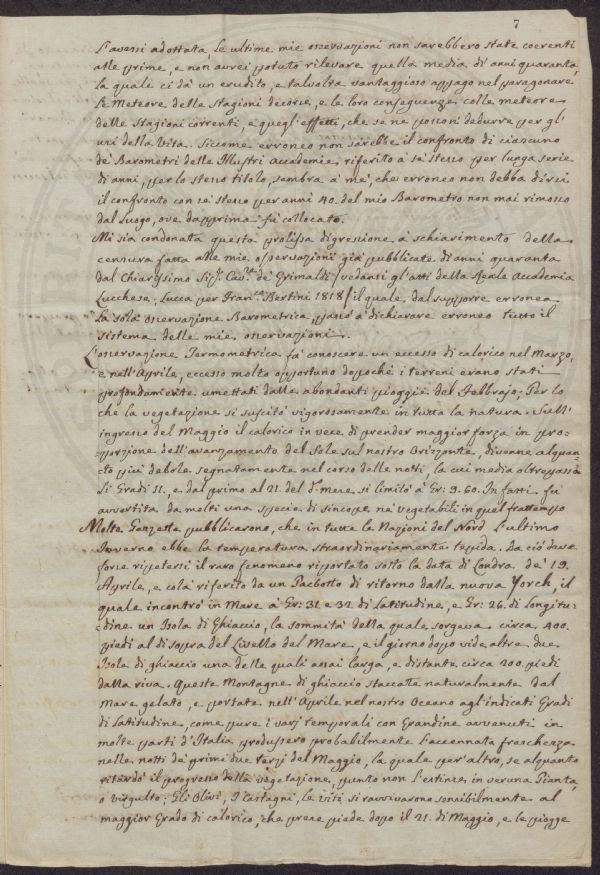 7
L'avessi adottata, le ultime mie osservazioni non sarebbero state coerenti
alle prime, e non avrei potuto rilevare quella media di anni quaranta,
la quali ci dà un erudito, e talvolta vantaggioso appago nel paragonare
le Meteore delle Stagioni decorse, e le loro conseguenze colle meteore
delle Stagioni correnti, e quegl'effetti, che se ne possono dedurre per gl'
usi della Vita. Siccome erroneo non sarebbe il confronto di ciascuno
de' Barometri delle Illustri Accademie, riferito a sè stesso per lunga serie
di anni, per lo stesso titolo, sembra a me, che erroneo non debba dirsi
il confronto con sè stesso per anni 40. del mio Barometro non mai rimosso
dal Luogo, ove dapprima fù collocato.
Mi sia condonata questa prolissa digressione a schiarimento della
censura fatta alle mie osservazioni già pubblicate di anni quaranta
dal Chiarissimo Sig.r Cav.re de' Grimaldi / vedansi gl'atti della Reale Accademia
Lucchese, Lucca per Fran.co Bertini 1818 / il quale, dal supporre erronea
la sola osservazione Barometrica, passò a dichiarare erroneo tutto il
sistema delle mie osservazioni.
L'osservazione Termometrica fà conoscere un eccesso di calorico nel Marzo,
e nell'Aprile, eccesso molto opportuno dopochè i terreni erano stati
profondamente umettati dalle abondanti pioggie del Febbrajo; Per lo
che la vegetazione si suscitò vigorosamente in tutta la natura. Sull'
ingresso del Maggio il calorico in vece di prender maggior forza in pro=
=porzione dell'avanzamento del Sole sul nostro Orizzonte, divenne alquan=
=to più debole segnatamente nel corso delle notti, la cui media oltrepassò
li Gradi 11. e dal primo al 21. del d.o Mese, si limitò a Gr: 9.60. In fatti fù
avvertita da molti una specie di sincope ne' vegetabili in quel frattempo
Molte Gazzette pubblicarono, che in tutte le Nazioni del Nord l'ultimo
Inverno ebbe la temperatura straordinariamente tepida. Da ciò deve
forse ripetersi il raro fenomeno riportato sotto la data di Londra de' 19.
Aprile, e colà riferito da un Pacbotto di ritorno dalla nuova Yorch, il
quale incontrò in Mare a Gr: 31 e 32. di Latitudine, e Gr: 26. di Longitu=
=dine un Isola di Ghiaccio, la sommità della quale sorgeva circa 400.
piedi al di sopra del Livello del Mare, e il giorno dopo vide altre due
Isole di ghiaccio una delle quali assai larga, e distante circa 200. piedi
dalla riva. Queste Montagne di ghiaccio staccate naturalmente dal
Mare gelato, e portate nell'Aprile nel nostro Oceano agl'indicati Gradi
di Latitudine, come pure i varj temporali con Grandine avvenuti in
molte parti d'Italia produssero probabilmente l'accennata freschezza
nelle notti de' primi due terzi del Maggio, la quale per altro, se alquanto
ritardò il progresso della vegetazione, punto non l'estinse in veruna Pianta,
o virgulto; Gli Olivi, I Castagni, le viti si ravvivarono sensibilmente al
maggior Grado di calorico, che prese piede dopo il 21. di Maggio, e le piogge